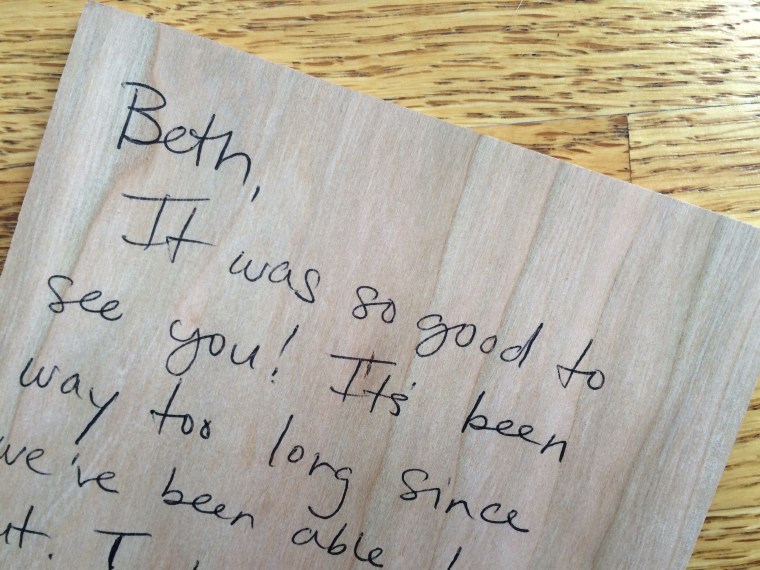 Beth,
It was so good to
see you! It's been
way too long since
we've been able